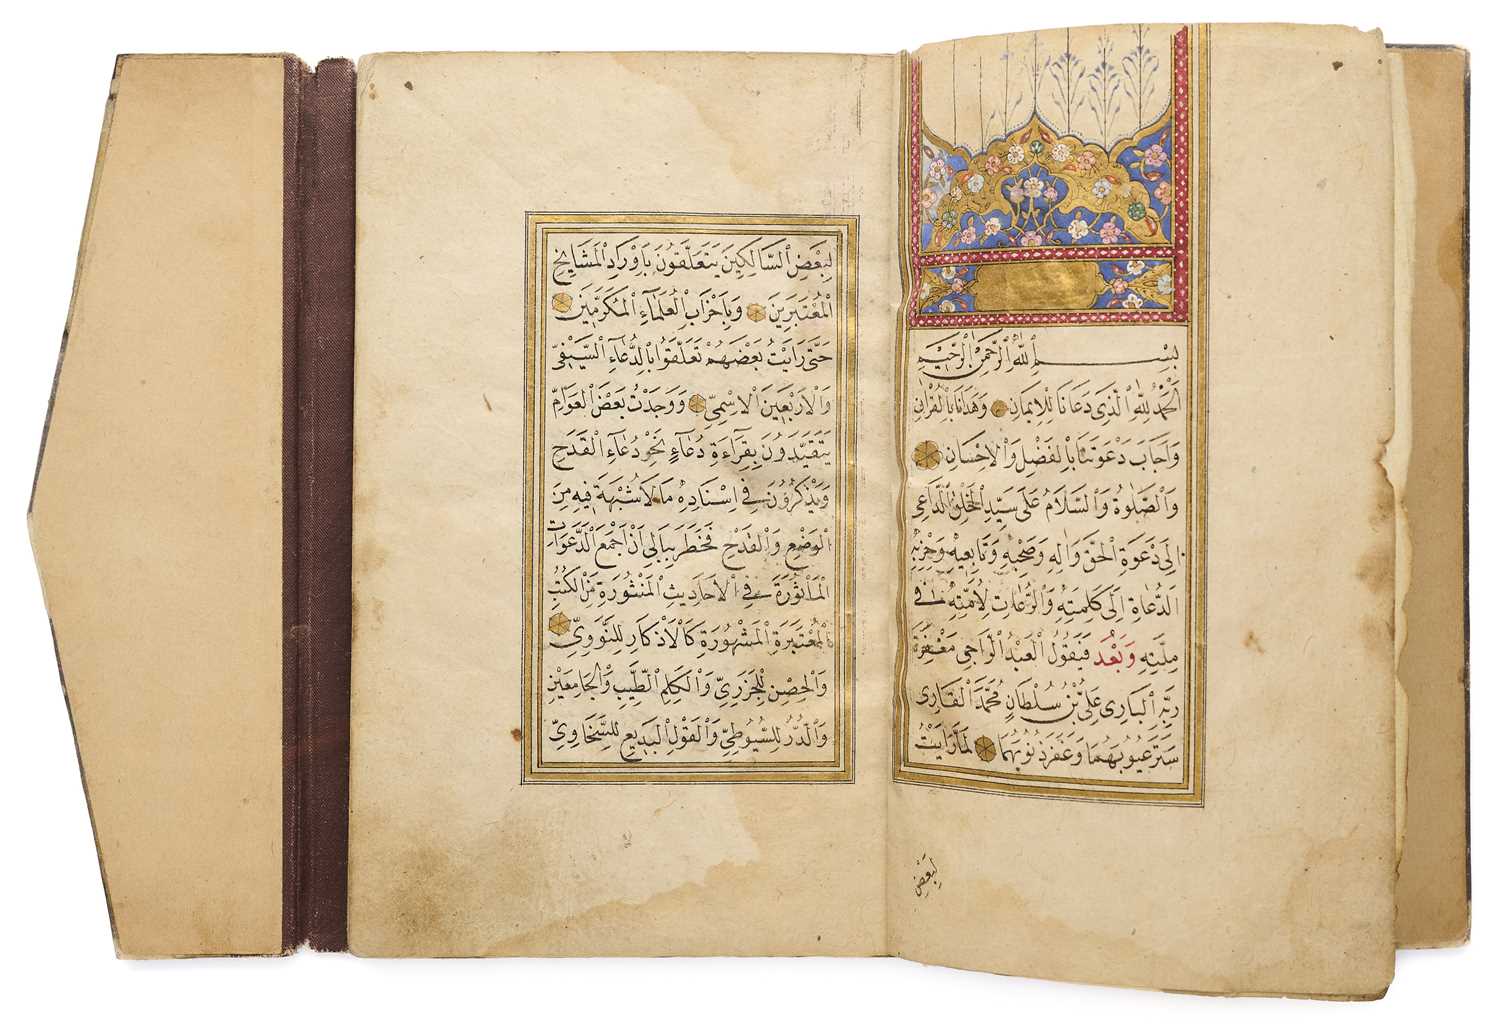 بِسْمِ اللهِ الرَّحْمٰنِ الرَّحِيْمِ
اَلْحَمْدُ لِلّٰهِ الَّذِى دَعَانَا لِلْاِيمَانِ وَهَدَانَا بِالْقُرْاٰنِ
وَاَجَابَ دَعْوَتَنَا بِالْفَضْلِ وَالْاِحْسَانِ
وَالصَّلٰوةُ وَالسَّلَامُ عَلٰى سَيِّدِ الْخَلْقِ الدَّاعِى
اِلٰى دَعْوَةِ الْحَقِّ وَاٰلِهِ وَصَحْبِهِ وَتَابِعِيهِ وَحِزْبِهِ
الدُّعَاةِ اِلٰى كَلِمَتِهِ وَالرُّعَاتِ لِاُمَّتِهِ فِى
مِلَّتِهِ وَبَعْدُ فَيَقُولُ الْعَبْدُ الرَّاجِى مَغْفِرَةَ
رَبِّهِ الْبَارِى عَلِىُّ بْنُ سُلْطَانِ مُحَمَّدَ الْقَارِى
سَتَرَ عُيُوبَهُمَا وَغَفَرَ ذُنُوبَهُمَا لَمَّا رَاَيْتُ
لِبَعْضِ
لِبَعْضِ السَّالِكِينَ يَتَعَلَّقُونَ بِاَوْرَادِ الْمَشَايِخِ
الْمُعْتَبَرِينَ وَبِاَحْزَابِ الْعُلَمَاءِ الْمُكَرَّمِينَ
حَتّٰى رَاَيْتُ بَعْضَهُمْ تَعَلَّقُوا بِالدُّعَاءِ السَّيْفِىِّ
وَالْاَرْبَعِينَ الْاِسْمِىِّ وَوَجَدْتُ بَعْضَ الْعَوَامِّ
يَتَقَيَّدُونَ بِقِرَاءَةِ دُعَاءٍ نَحْوِ دُعَاءِ الْقَدَحِ
وَيَذْكُرُونَ فِى اِسْنَادِهِ مَا لَا شُبْهَةَ فِيهِ مِنَ
الْوَضْعِ وَالْقَدْحِ فَخَطَرَ بِبَالِى اَنْ اَجْمَعَ الدَّعَوَاتِ
الْمَأْثُورَةَ فِى الْاَحَادِيثِ الْمَنْثُورَةِ مِنَ الْكُتُبِ
الْمُعْتَبَرَةِ الْمَشْهُورَةِ كَالْاَذْكَارِ لِلنَّوَوِىِّ
وَالْحِصْنِ لِلْجَزَرِىِّ وَالْكَلِمِ الطَّيِّبِ وَالْجَامِعَيْنِ
وَالدُّرِّ لِلسُّيُوطِىِّ وَالْقَوْلِ الْبَدِيعِ لِلسَّخَاوِىِّ